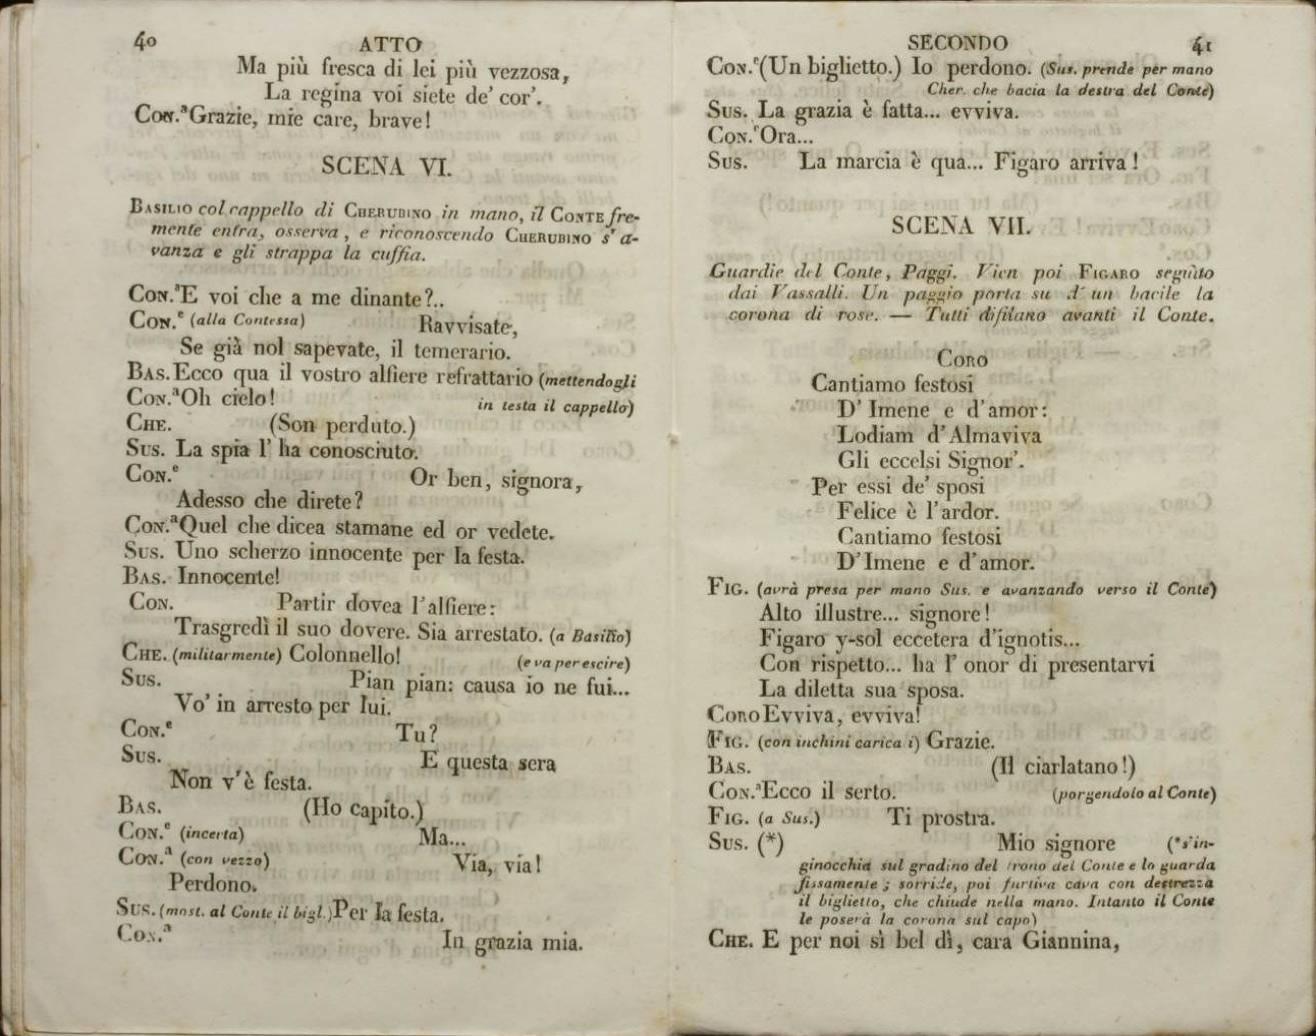 40
ATTO
Ma più fresca di lei più vezzosa,
La regina voi siete de' cor'.
Con.ª Grazie, mie care, brave!
SCENA VI.
Basilio col cappello di Cherubino in mano, il Conte fre-
mente entra, osserva, e riconoscendo Cherubino s'a-
vanza e gli strappa la cuffia.
Con.ª E voi che a me dinante?..
Con.e (alla Contessa) Ravvisate,
Se già nol sapevate, il temerario.
Bas. Ecco qua il vostro alfiere refrattario (mettendogli
Con.ª Oh cielo! in testa il cappello)
Che. (Son perduto.)
Sus. La spia l'ha conosciuto.
Con.e Or ben, signora,
Adesso che direte?
Con.ª Quel che dicea stamane ed or vedete.
Sus. Uno scherzo innocente per la festa.
Bas. Innocente!
Con. Partir dovea l'alfiere:
Trasgredì il suo dovere. Sia arrestato. (a Basilio)
Che. (militarmente) Colonnello! (e va per escire)
Sus. Pian pian: causa io ne fui...
Vo' in arresto per lui.
Con.e Tu?
Sus. E questa sera
Non v'è festa.
Bas. (Ho capito.)
Con.e (incerta) Ma...
Con.ª (con vezzo) Via, via!
Perdono.
Sus. (most. al Conte il bigl.) Per la festa.
Con.ª In grazia mia.
SECONDO
41
Con.e (Un biglietto.) Io perdono. (Sus. prende per mano
Cher. che bacia la destra del Conte)
Sus. La grazia è fatta... evviva.
Con.e Ora...
Sus. La marcia è qua... Figaro arriva!
SCENA VII.
Guardie del Conte, Paggi. Vien poi Figaro seguito
dai Vassalli. Un paggio porta su d'un bacile la
corona di rose. — Tutti difilano avanti il Conte.
Coro
Cantiamo festosi
D'Imene e d'amor:
Lodiam d'Almaviva
Gli eccelsi Signor'.
Per essi de' sposi
Felice è l'ardor.
Cantiamo festosi
D'Imene e d'amor.
Fig. (avrà presa per mano Sus. e avanzando verso il Conte)
Alto illustre... signore!
Figaro y-sol eccetera d'ignotis...
Con rispetto... ha l'onor di presentarvi
La diletta sua sposa.
Coro Evviva, evviva!
Fig. (con inchini carica i) Grazie.
Bas. (Il ciarlatano!)
Con.ª Ecco il serto. (porgendolo al Conte)
Fig. (a Sus.) Ti prostra.
Sus. (*) Mio signore (*s'in-
ginocchia sul gradino del trono del Conte e lo guarda
fissamente; sorride, poi furtiva cava con destrezza
il biglietto, che chiude nella mano. Intanto il Conte
le poserà la corona sul capo)
Che. E per noi sì bel dì, cara Giannina,